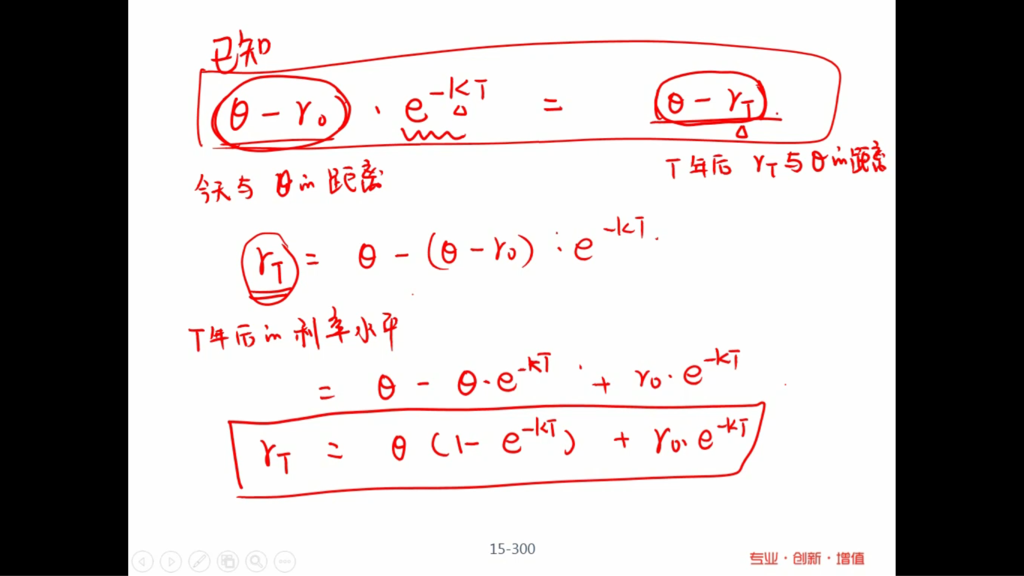 已知
θ - r₀ · e^{-kT} = θ - r_T.
今天与 θ的距离
T年后 r_T与θ的距离
r_T = θ - (θ - r₀) · e^{-kT}.
T年后的利率水平
= θ - θ·e^{-kT} + r₀·e^{-kT}
r_T = θ (1 - e^{-kT}) + r₀·e^{-kT}
15-300
专业·创新·增值